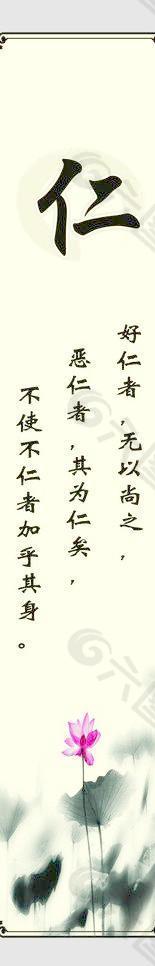 仁
好仁者,无以尚之,
恶仁者,其为仁矣,
不使不仁者加乎其身。